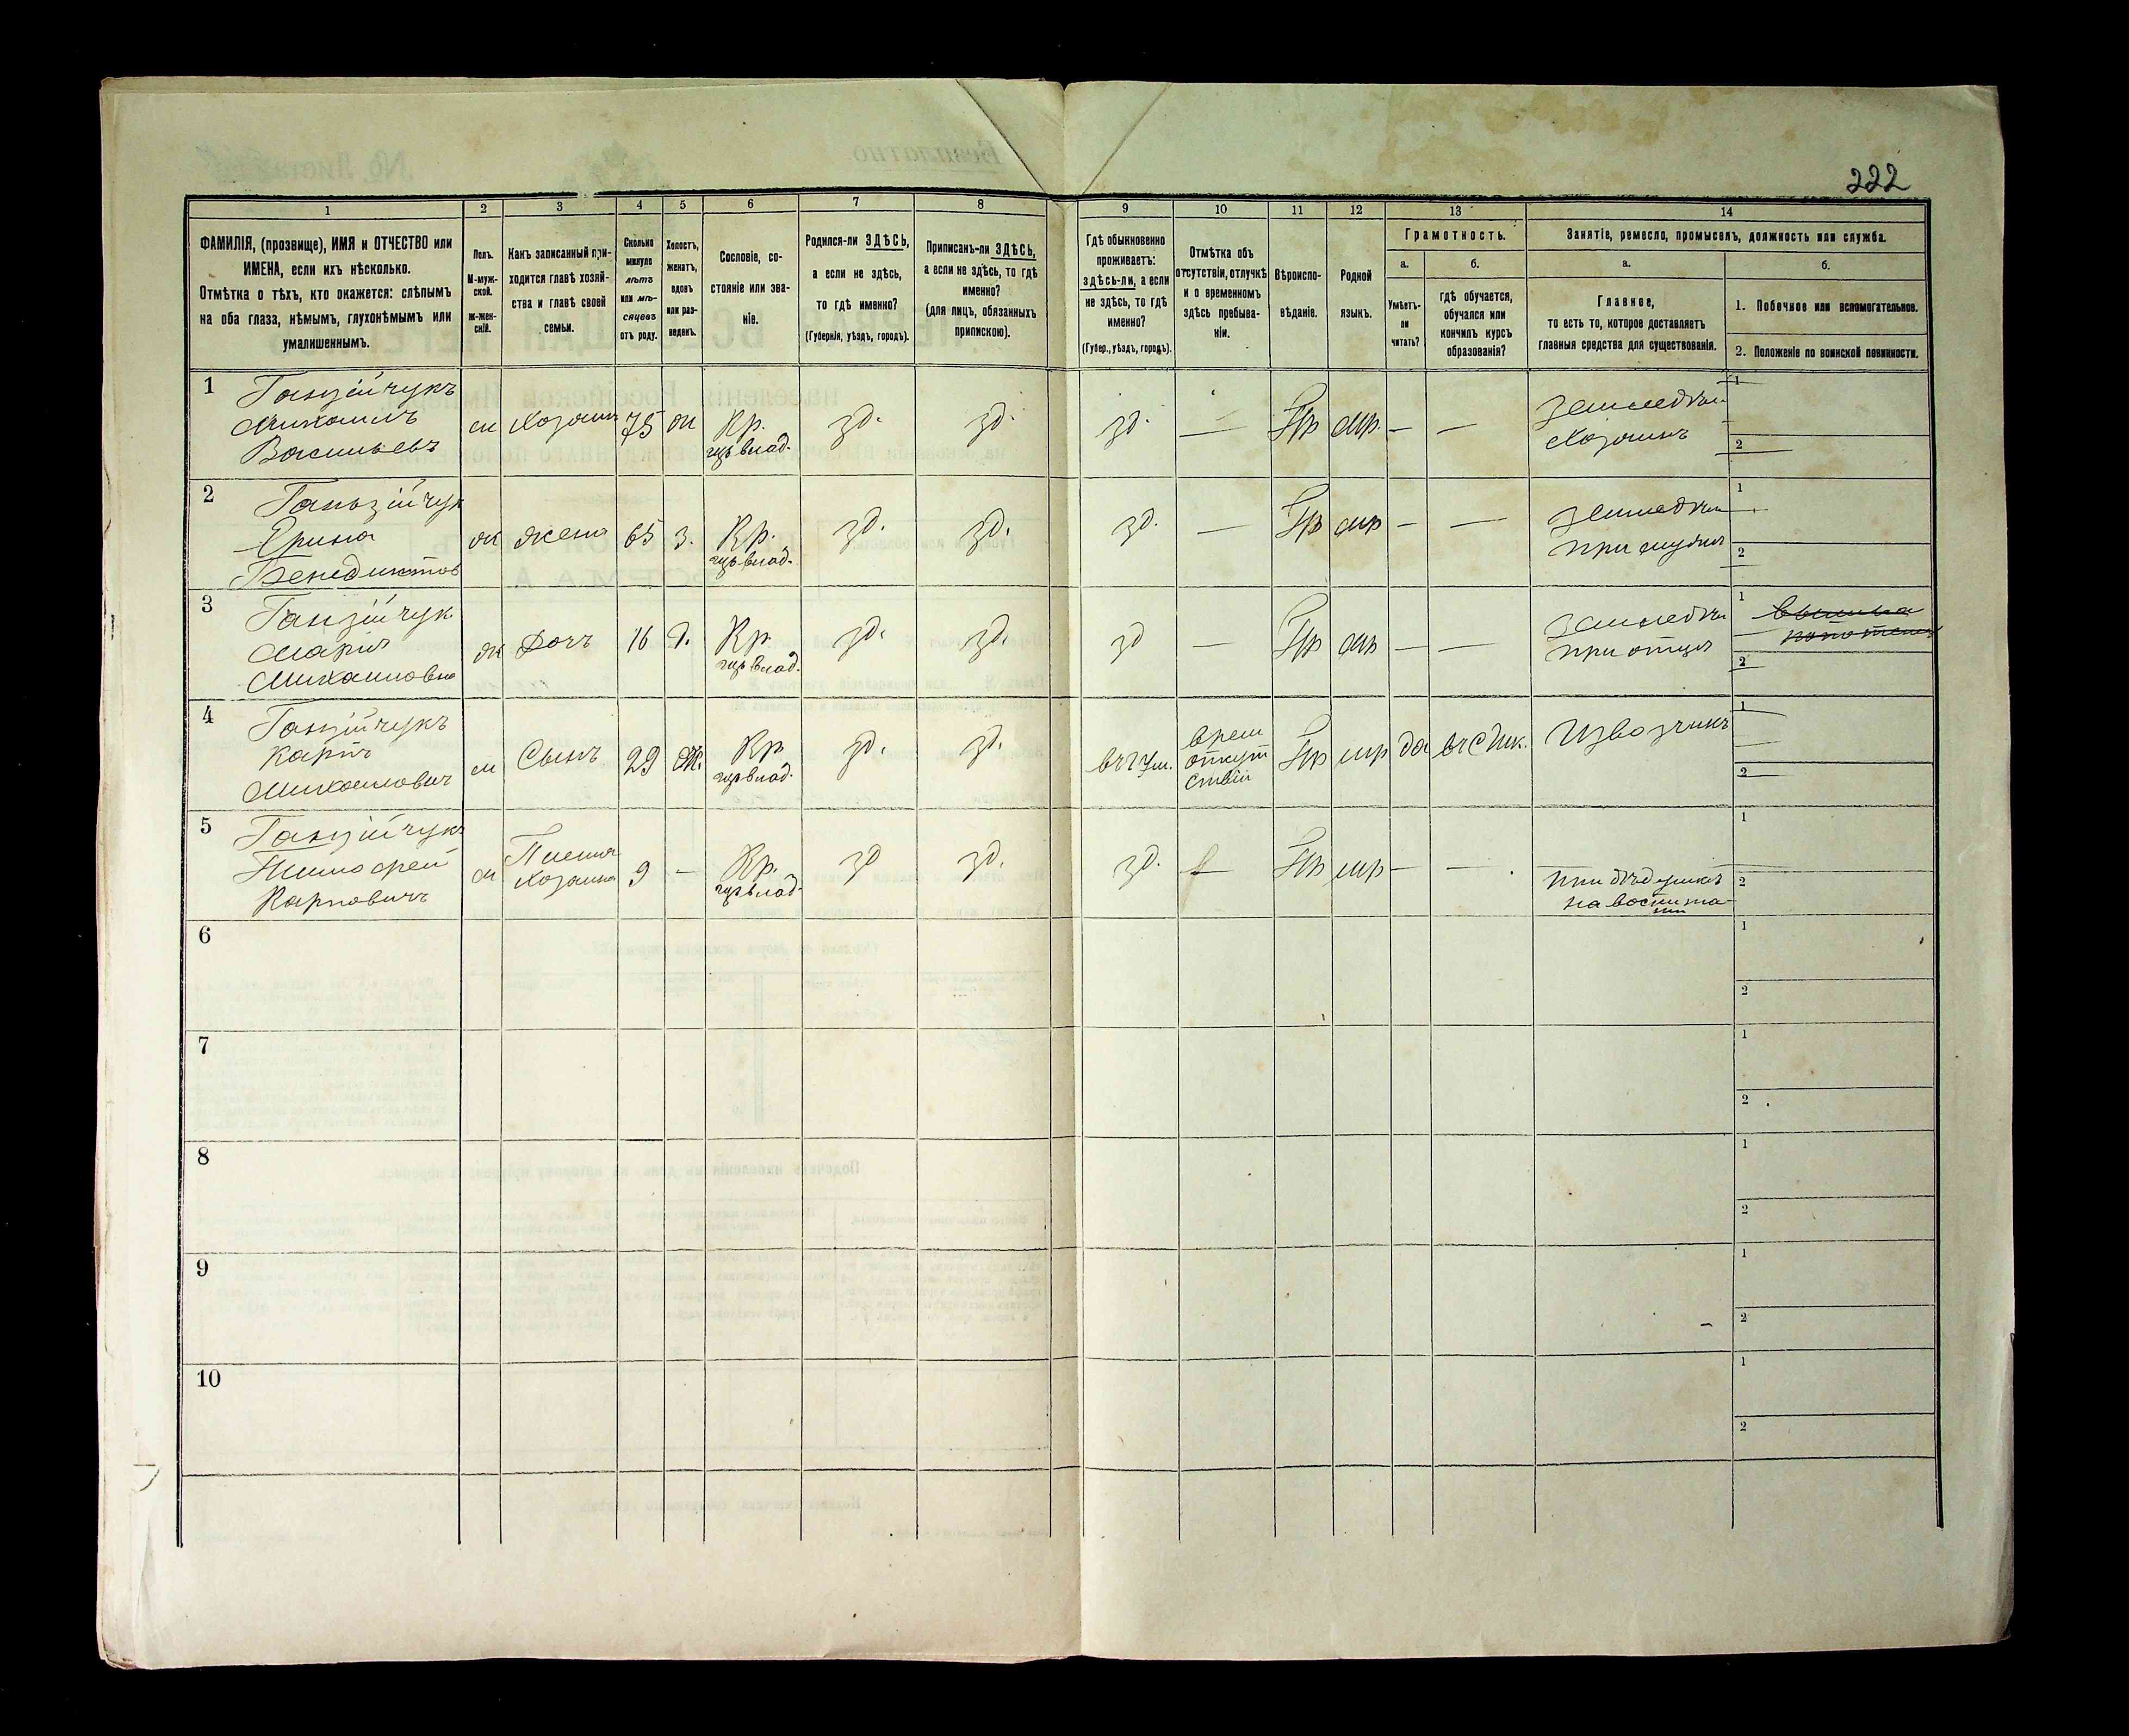 222
1 2 3 4 5 6 7 8 9 10 11 12 13 14
ФАМИЛІЯ, (прозвище), ИМЯ и ОТЧЕСТВО или
ИМЕНА, если ихъ нѣсколько.
Отмѣтка о тѣхъ, кто окажется: слѣпымъ
на оба глаза, нѣмымъ, глухонѣмымъ или
умалишеннымъ.
Полъ.
М-муж-
ской.
ж-жен-
скій.
Какъ записанный при-
ходится главѣ хозяй-
ства и главѣ своей
семьи.
Сколько
минуло
лѣтъ
или мѣ-
сяцевъ
отъ роду.
Холостъ,
женатъ,
вдовъ
или раз-
веденъ.
Сословіе, со-
стояніе или зва-
ніе.
Родился-ли ЗДѢСЬ,
а если не здѣсь,
то гдѣ именно?
(Губернія, уѣздъ, городъ).
Приписанъ-ли ЗДѢСЬ,
а если не здѣсь, то гдѣ
именно?
(для лицъ, обязанныхъ
припискою).
Гдѣ обыкновенно
проживаетъ:
здѣсь-ли, а если
не здѣсь, то гдѣ
именно?
(Губер., уѣздъ, городъ).
Отмѣтка объ
отсутствіи, отлучкѣ
и о временномъ
здѣсь пребыва-
ніи.
Вѣроиспо-
вѣданіе.
Родной
языкъ.
Грамотность.
а.
Умѣетъ-
ли
читать?
б.
гдѣ обучается,
обучался или
кончилъ курсъ
образованія?
Занятіе, ремесло, промыселъ, должность или служба.
а.
Главное,
то есть то, которое доставляетъ
главныя средства для существованія.
б.
1. Побочное или вспомогательное.
2. Положеніе по воинской повинности.
1
Ганзійчукъ
Михаилъ
Васильевъ
м Хозяинъ 75
Кр.
влад.
зд. зд. зд. — Пр мр. — —
Хозяинъ
1
2
2
Ганьзійчук
Ерина
Бенедиктов
ж жена 65 З.
Кр.
влад.
зд. зд. зд. — Пр мр — —
при мужѣ
1
2
3
Ганзійчук
Марія
Михаиловна
ж Дочь 16 Д.
Кр.
влад.
зд. зд. зд — Пр мр — —
при отцѣ
1
2
4
Ганзійчукъ
Карпъ
Михаиловичъ
м Сынъ 29 Ж.
Кр
влад.
зд. зд.
врем
отсут
ствіи
Пр мр да
Извозчикъ
1
2
5
Ганзійчукъ
Тимофей
Карповичъ
м
Племян
Хозяина
9 —
Кр.
влад.
зд зд. зд. — Пр мр — —
при дѣдушкѣ
на воспита-
нии
1
2
6
1
2
7
1
2
8
1
2
9
1
2
10
1
2